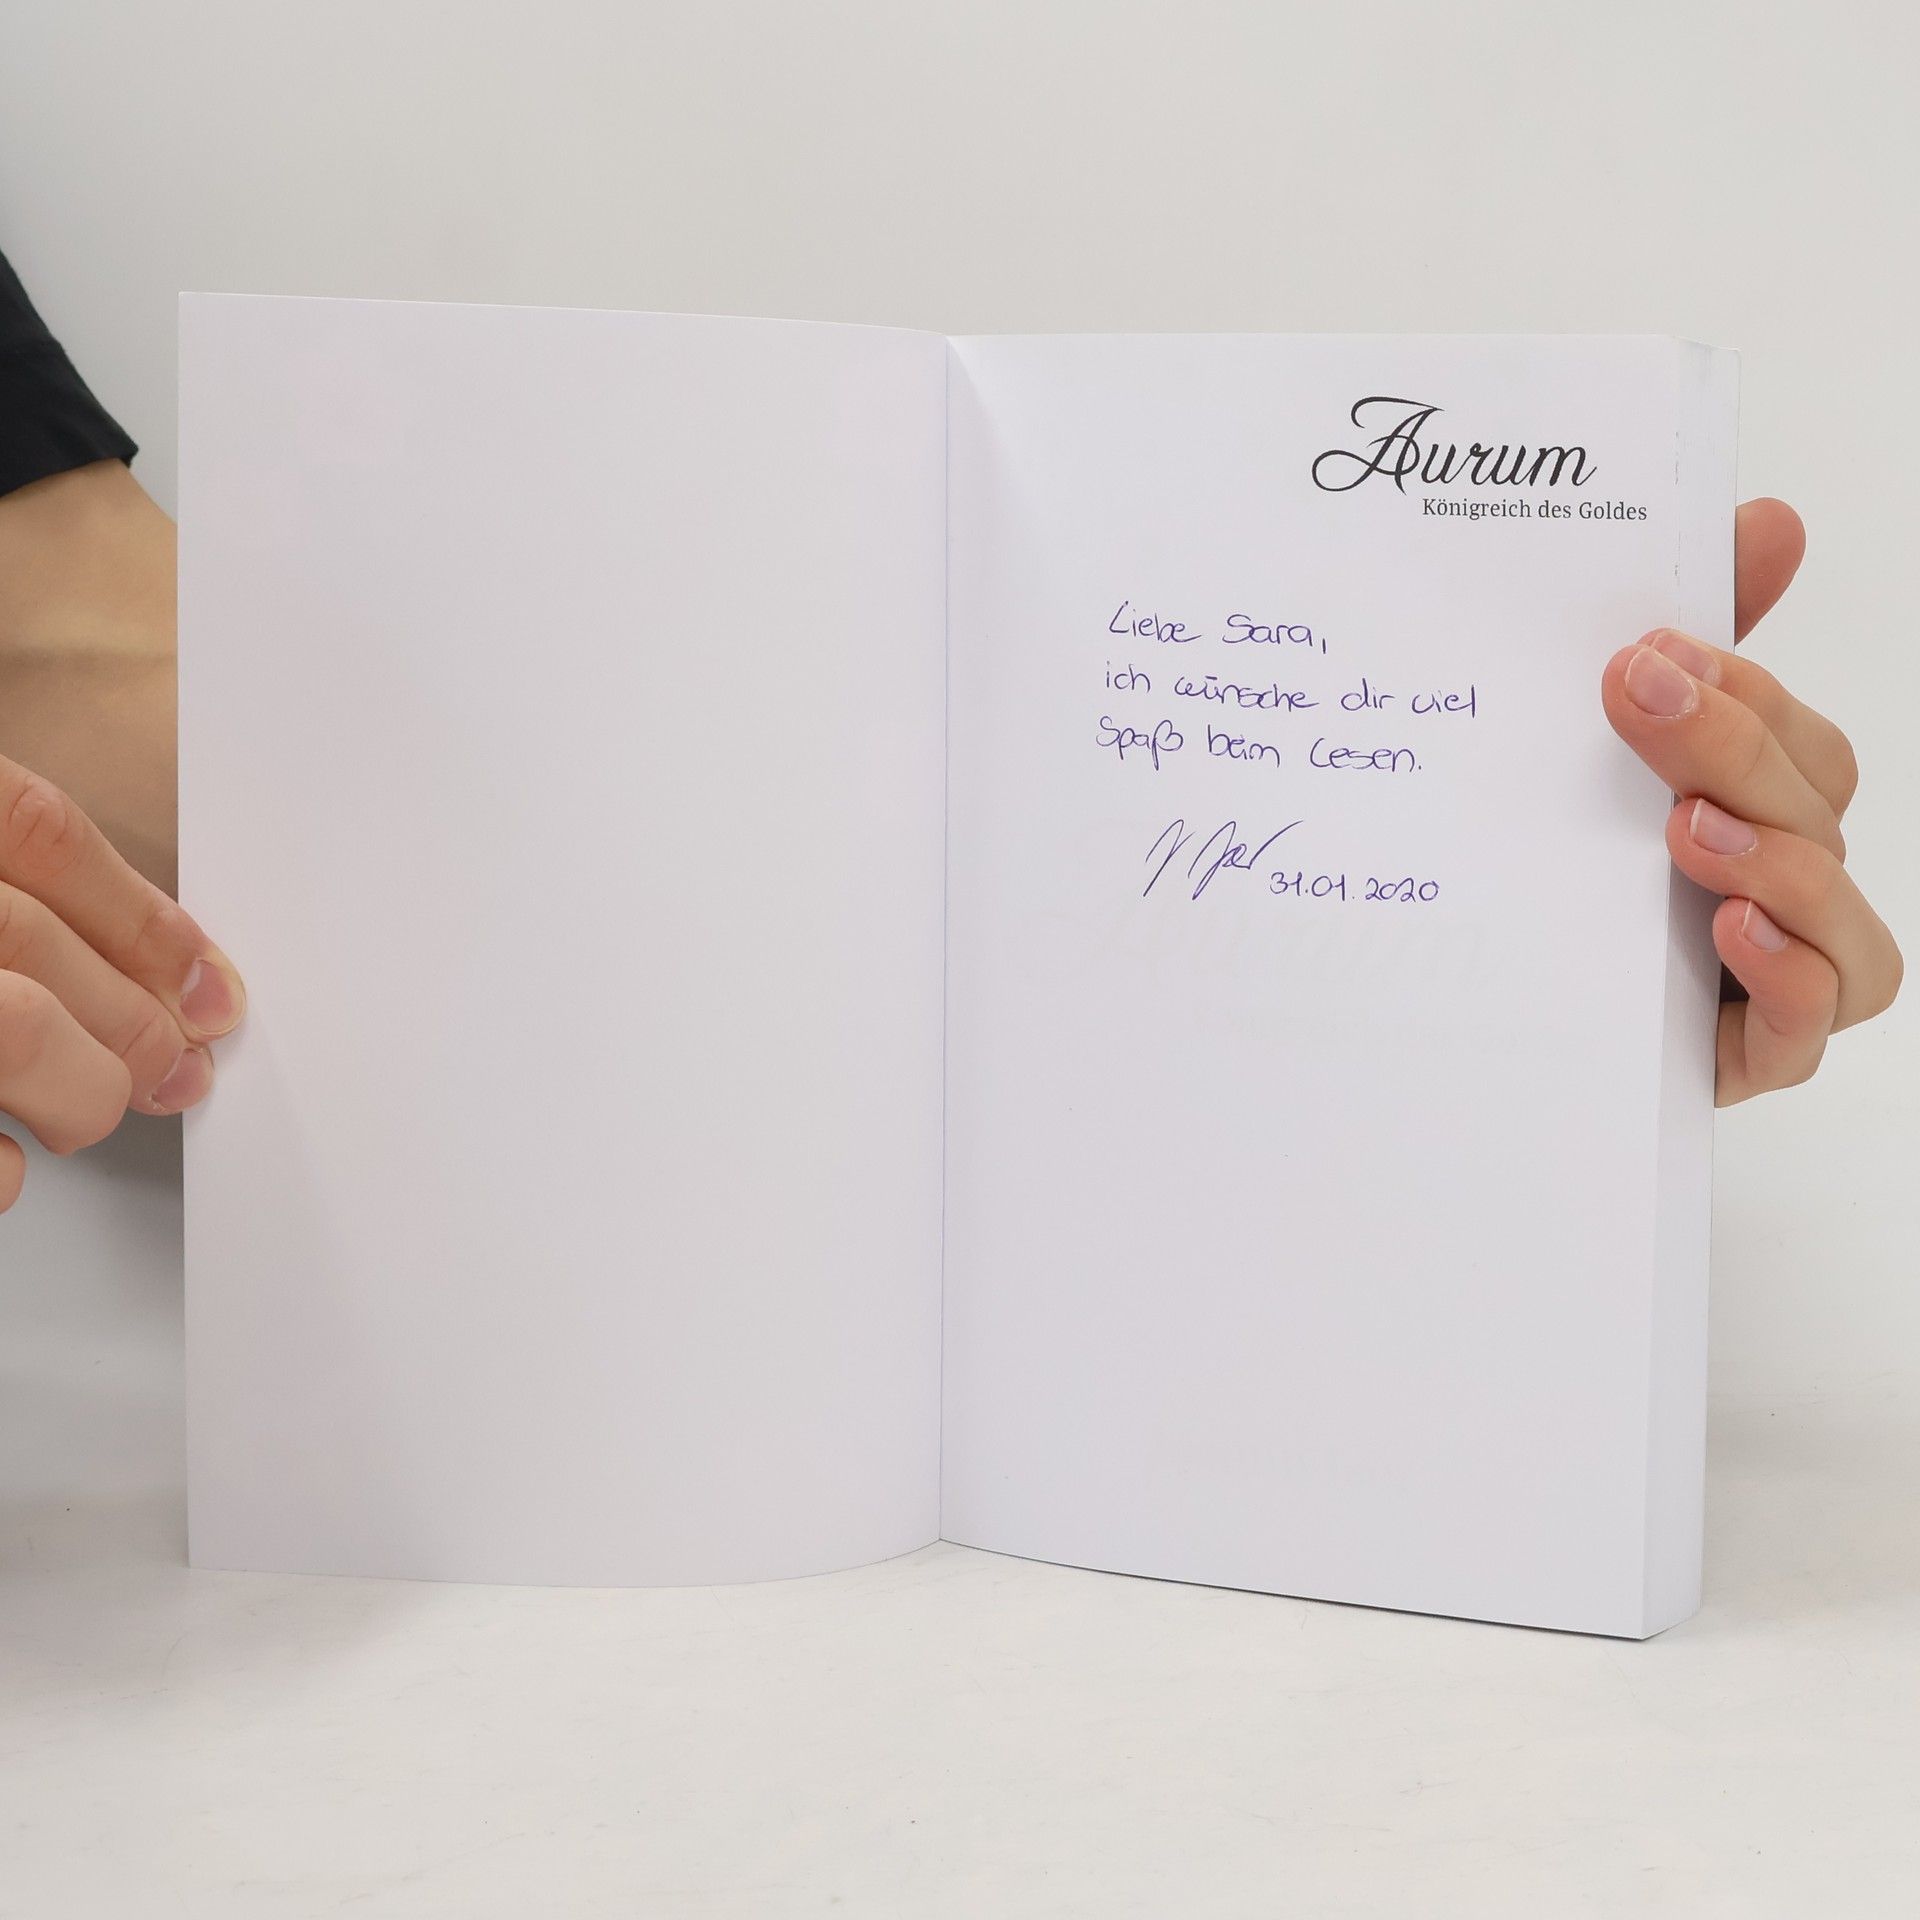 Aurum
Königreich des Goldes
Liebe Sara,
ich wünsche dir viel
Spaß beim Lesen.
31.01.2020